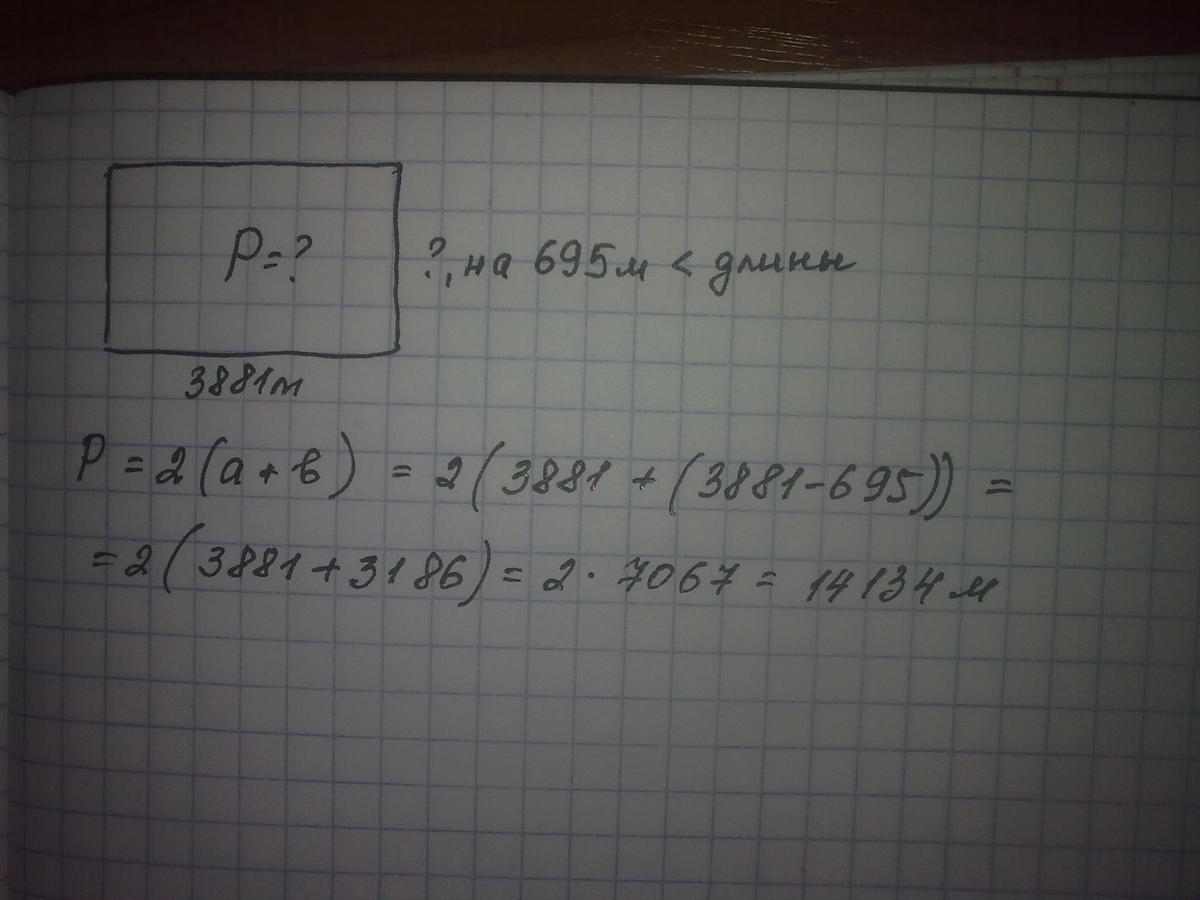 P=?
?, на 695м < длины
3881м
P = 2(а + в) = 2(3881 + (3881-695)) =
= 2(3881+3186) = 2·7067 = 14134 м